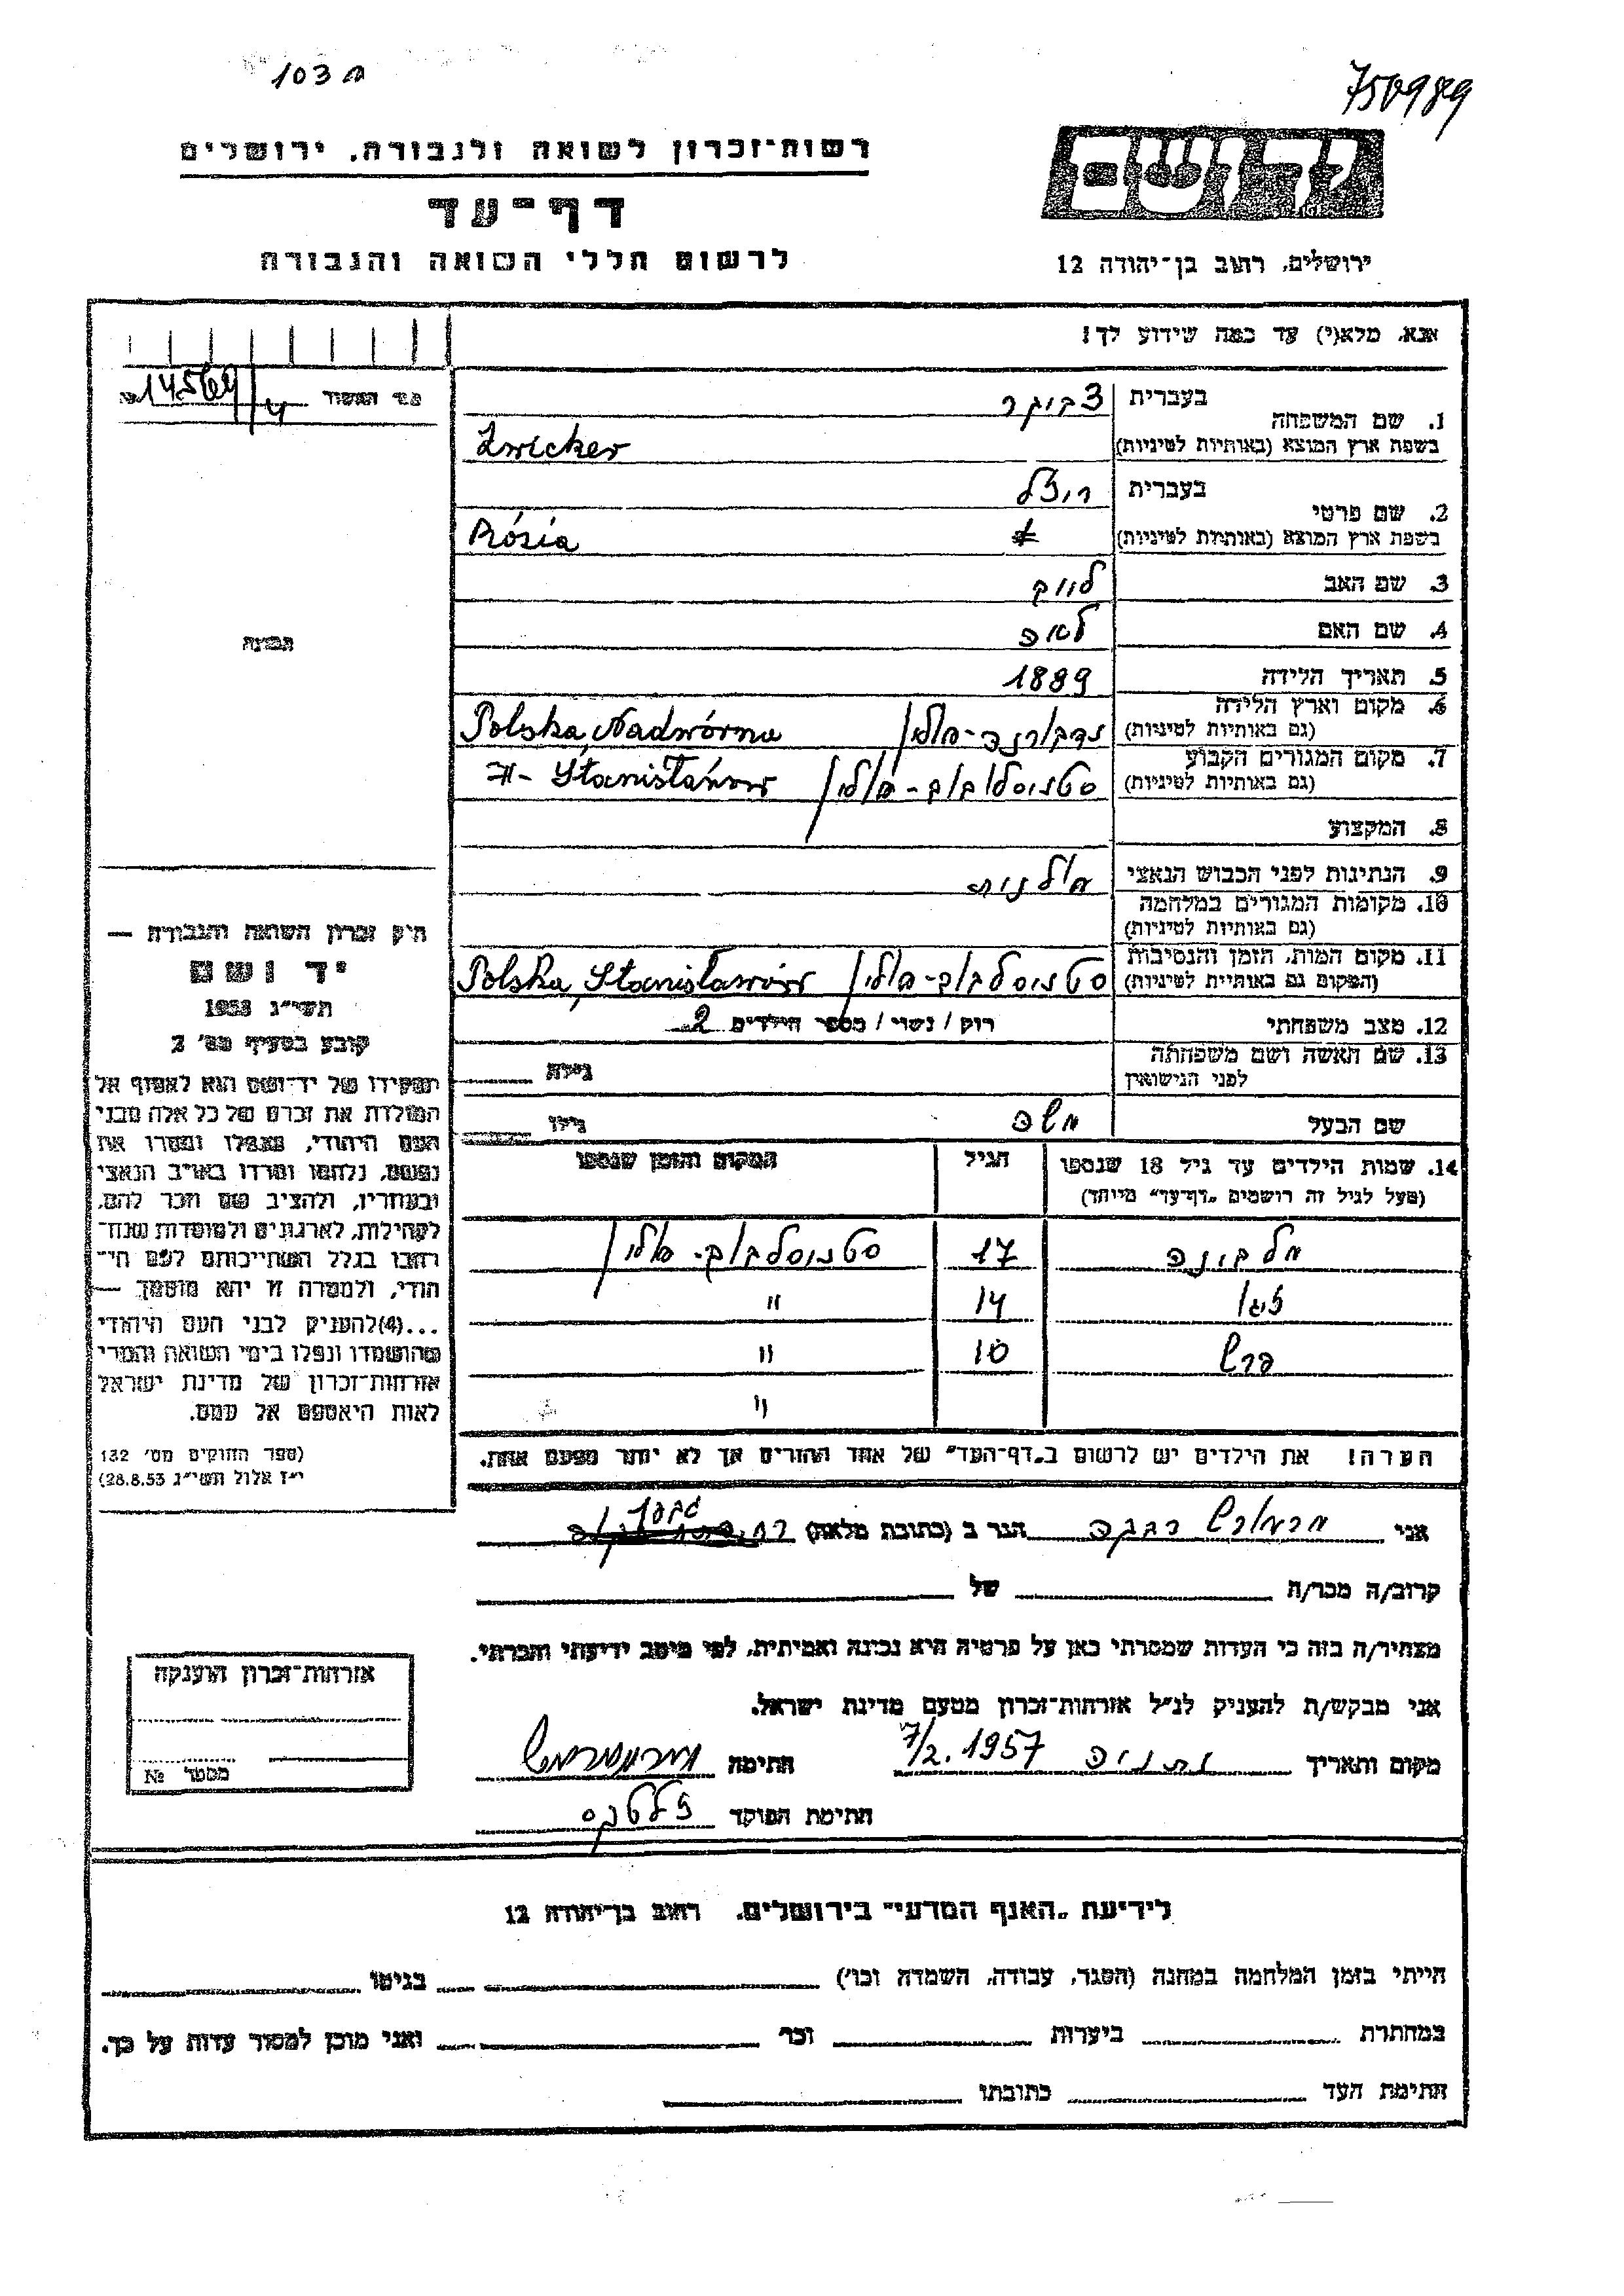 103 ח
750989
רשות־זכרון לשואה ולגבורה, ירושלים
דף־עד
לרשום חללי השואה והגבורה
יד ושם
ירושלים, רחוב בן־יהודה 12
אנא, מלא(י) עד כמה שידוע לך!
14564/4
1. שם המשפחה
בעברית
בשפת ארץ המוצא (באותיות לטיניות) Zwicker
2. שם פרטי
בעברית רוזל
בשפת ארץ המוצא (באותיות לטיניות) Rózia
3. שם האב
4. שם האם לאה
5. תאריך הלידה 1889
6. מקום וארץ הלידה
(גם באותיות לטיניות) נדבורנה - פולין Polska, Nadwórna
7. מקום המגורים הקבוע
(גם באותיות לטיניות) סטניסלבוב - פולין Stanisławów
8. המקצוע
9. הנתינות לפני הכבוש הנאצי פולנית
10. מקומות המגורים במלחמה
(גם באותיות לטיניות)
11. מקום המות, הזמן והנסיבות
(המקום גם באותיות לטיניות) סטניסלבוב - פולין Polska, Stanisławów
12. מצב משפחתי רוק / נשוי / מספר הילדים 2
13. שם האשה ושם משפחתה
לפני הנישואין גילה
שם הבעל משה גילו
14. שמות הילדים עד גיל 18 שנספו
(מעל לגיל זה רושמים „דף־עד" מיוחד)
הגיל
המקום והזמן שנספו
מלבינה 17 סטניסלבוב - פולין
14 "
10 "
"
הערה! את הילדים יש לרשום ב„דף־העד" של אחד ההורים אך לא יותר מפעם אחת.
תמונה
חוק זכרון השואה והגבורה —
יד ושם
תשי"ג 1953
קובע בסעיף מס' 2
תפקידו של יד־ושם הוא לאסוף אל
המולדת את זכרם של כל אלה מבני
העם היהודי, שנפלו ומסרו את
נפשם, נלחמו ומרדו באויב הנאצי
ובעוזריו, ולהציב שם וזכר להם,
לקהילות, לארגונים ולמוסדות שנח־
רבו בגלל השתייכותם לעם הי־
הודי, ולמטרה זו יהא מוסמך —
...(4)להעניק לבני העם היהודי
שהושמדו ונפלו בימי השואה והמרי
אזרחות־זכרון של מדינת ישראל
לאות היאספם אל עמם.
(ספר החוקים מס' 132
י"ז אלול תשי"ג 28.8.53)
אני רבקה הגר ב (כתובת מלאה)
קרוב/ה מכר/ה של
מצהיר/ה בזה כי העדות שמסרתי כאן על פרטיה היא נכונה ואמיתית, לפי מיטב ידיעתי והכרתי.
אני מבקש/ת להעניק לנ"ל אזרחות־זכרון מטעם מדינת ישראל.
מקום ותאריך נתניה 7/2.1957 חתימה
חתימת הפוקד
אזרחות־זכרון הוענקה
מספר №
לידיעת „האגף המדעי" בירושלים, רחוב בן־יהודה 12
הייתי בזמן המלחמה במחנה (הסגר, עבודה, השמדה וכו') בגיטו
במחתרת ביערות וכו' ואני מוכן למסור עדות על כך.
חתימת העד כתובתו